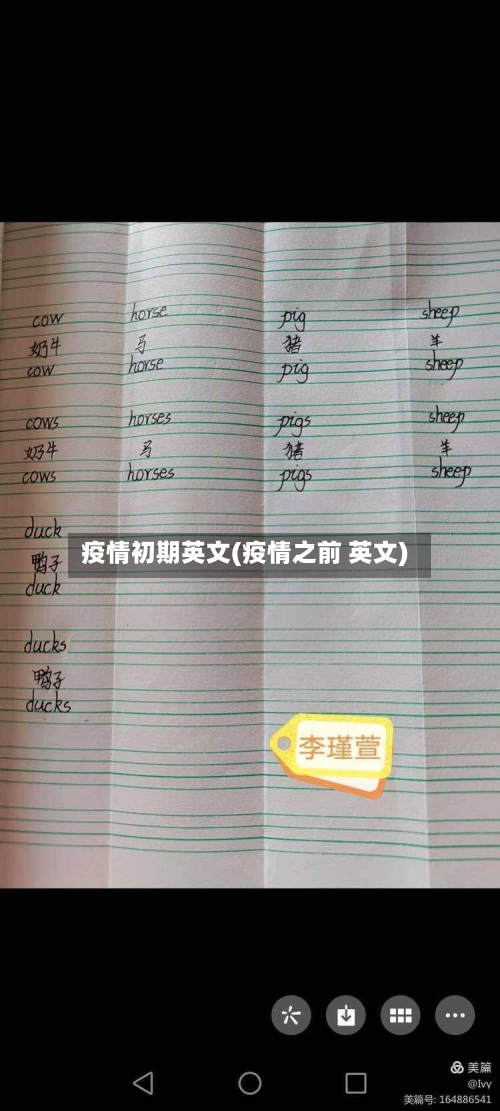 cow horse pig sheep
奶牛 马 猪 羊
cow horse pig sheep
cows horses pigs sheep
奶牛 马 猪 羊
cows horses pigs sheep
duck
疫情初期英文(疫情之前 英文)
鸭子
duck
ducks
鸭子
ducks
李瑾萱
美篇
@Ivy
美篇号: 164886541